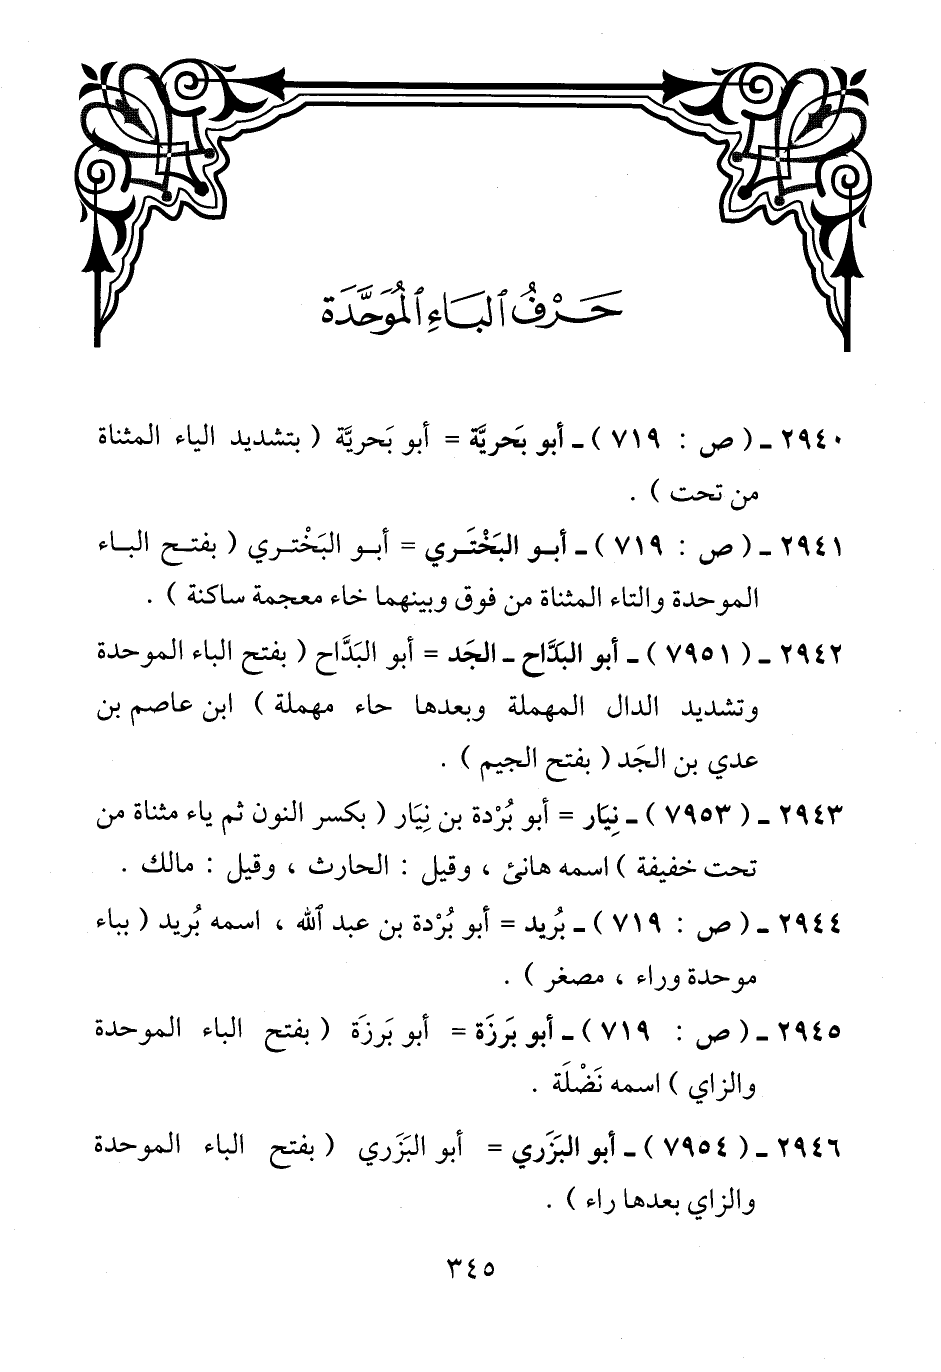 حَرْفُ ٱلبَاءِ ٱلْمُوَحَّدَة
٢٩٤٠ ـ ( ص : ٧١٩ ) ـ أبو بَحريَّة = أبو بَحريَّة ( بتشديد الياء المثناة
من تحت ) .
٢٩٤١ ـ ( ص : ٧١٩ ) ـ أبـو البَخْتَـري = أبـو البَخْتـري ( بفتـح البـاء
الموحدة والتاء المثناة من فوق وبينهما خاء معجمة ساكنة ) .
٢٩٤٢ ـ ( ٧٩٥١ ) ـ أبو البَدَّاح ـ الجَد = أبو البَدَّاح ( بفتح الباء الموحدة
وتشديد الدال المهملة وبعدها حاء مهملة ) ابن عاصم بن
عدي بن الجَد ( بفتح الجيم ) .
٢٩٤٣ ـ ( ٧٩٥٣ ) ـ نِيَار = أبو بُرْدة بن نِيَار ( بكسر النون ثم ياء مثناة من
تحت خفيفة ) اسمه هانئ ، وقيل : الحارث ، وقيل : مالك .
٢٩٤٤ ـ ( ص : ٧١٩ ) ـ بُريد = أبو بُرْدة بن عبد ٱلله ، اسمه بُريد ( بباء
موحدة وراء ، مصغر ) .
٢٩٤٥ ـ ( ص : ٧١٩ ) ـ أبو بَرزَة = أبو بَرزَة ( بفتح الباء الموحدة
والزاي ) اسمه نَضْلَة .
٢٩٤٦ ـ ( ٧٩٥٤ ) ـ أبو البَزَري = أبو البَزَري ( بفتح الباء الموحدة
والزاي بعدها راء ) .
٣٤٥